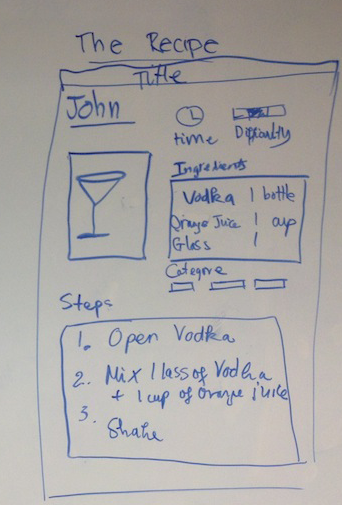 The Recipe
Title
John
time
Difficulty
Ingredients
Vodka 1 bottle
Orange Juice 1 cup
Glass 1
Categorie
Steps
1. Open Vodka
2. Mix 1 lass of Vodka
+ 1 cup of Orange juice
3.
Shake